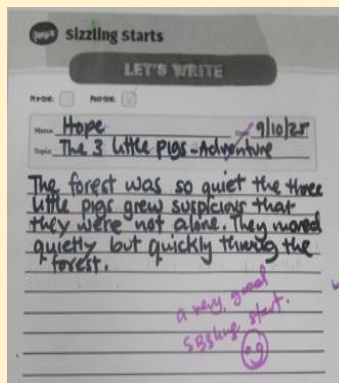 sizzling starts
LET'S WRITE
Pre-unit: Post-unit:
Name Hope 9/10/25
Topic The 3 little pigs - Adventure
The forest was so quiet the three
little pigs grew suspicious that
they were not alone. They moved
quietly but quickly throug the
forest.
a very good
sizzling start.